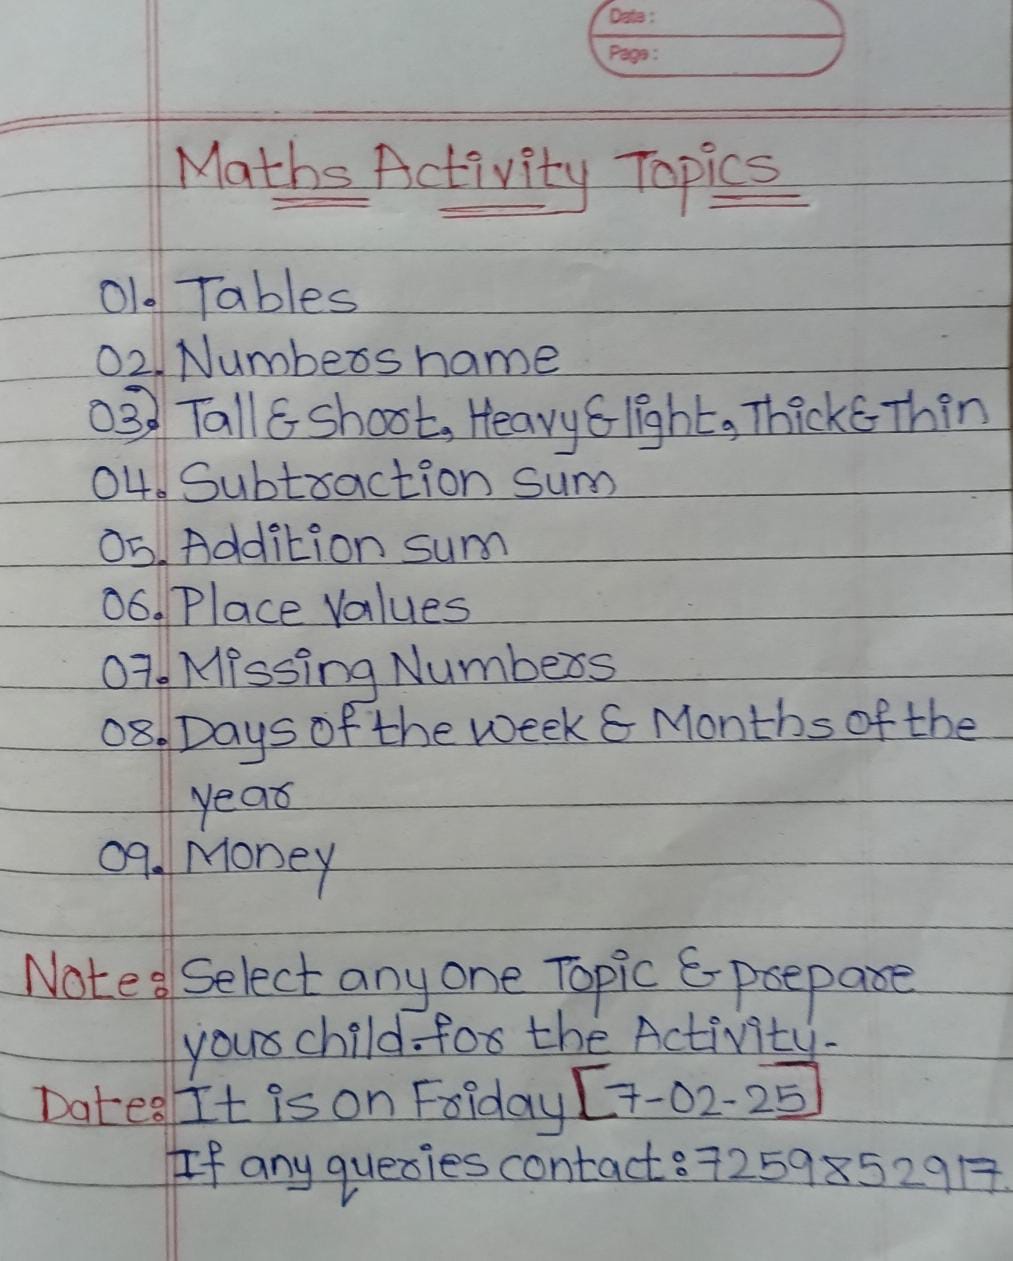 Date:
Page:
Maths Activity Topics
01. Tables
02. Numbers name
03. Tall & Short, Heavy & light, Thick & Thin
04. Subtraction sum
05. Addition sum
06. Place Values
07. Missing Numbers
08. Days of the week & Months of the
year
09. Money
Note: Select any one Topic & prepare
your child for the Activity.
Date: It is on Friday [7-02-25]
If any queries contact: 7259852917